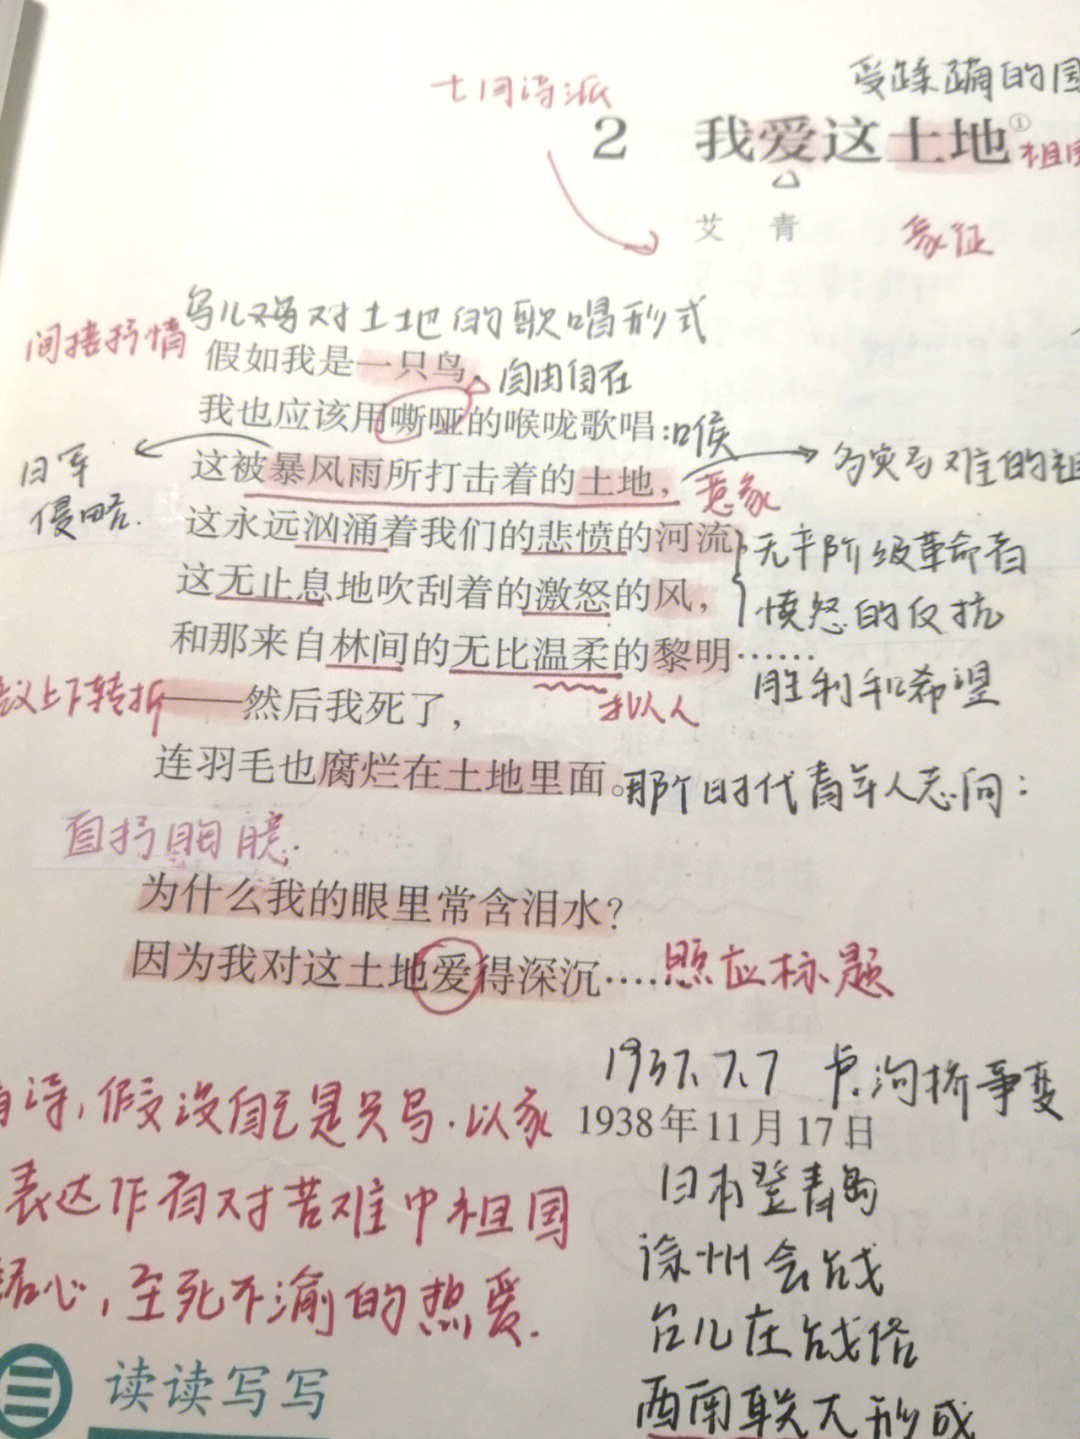 七月诗派
受蹂躏的国
2 我爱这土地①
祖国
艾 青
象征
鸟儿对土地的歌唱形式
间接抒情
假如我是一只鸟,
自由自在
我也应该用嘶哑的喉咙歌唱:
口侯
日军
侵略.
这被暴风雨所打击着的土地,
意象
多灾多难的祖
这永远汹涌着我们的悲愤的河流,
无产阶级革命者
这无止息地吹刮着的激怒的风,
愤怒的反抗
和那来自林间的无比温柔的黎明……
胜利和希望
拟人
议上下转折
——然后我死了,
连羽毛也腐烂在土地里面。
那个时代青年人志向:
直抒胸臆.
为什么我的眼里常含泪水?
因为我对这土地爱得深沉……
照应标题
1937.7.7 卢沟桥事变
1938年11月17日
诗,假设自己是只鸟.以象
表达作者对苦难中祖国
心,至死不渝的热爱.
日本登青岛
徐州会战
台儿庄战役
西南联大形成
读读写写